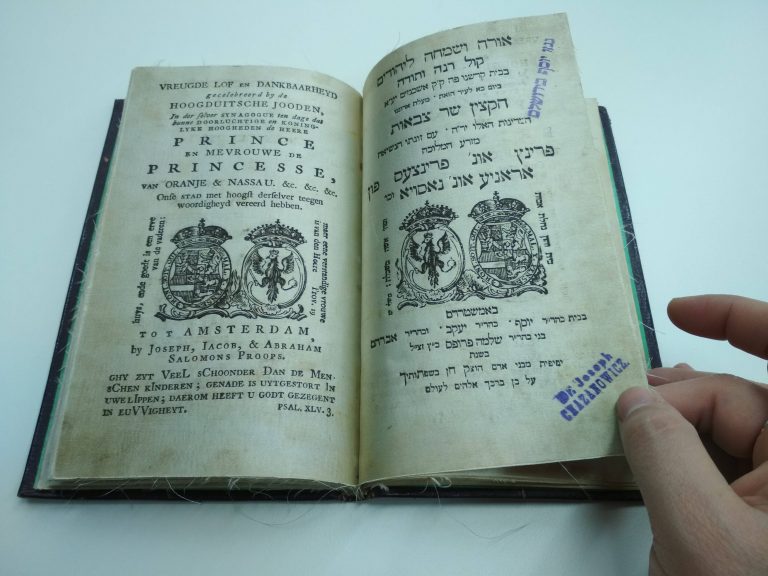 VREUGDE LOF EN DANKBAARHEYD
gecelebreerd by de
HOOGDUITSCHE JOODEN,
In der selver SYNAGOGUE ten dage dat
hunne DOORLUCHTIGE en KONING-
LYKE HOOGHEDEN de HEERE
PRINCE
EN MEVROUWE DE
PRINCESSE,
VAN ORANJE & NASSAU. &c. &c. &c.
Onse STAD met hoogst derselver teegen
woordigheyd vereerd hebben.
huys, ende goedt is een erve
van de vaderen:
maer eene verstandige vrouwe
is van den Heere Prov. 19
TOT AMSTERDAM,
by JOSEPH, IACOB, & ABRAHAM
SALOMONS PROOPS.
GHY ZYT VEEL SCHOONDER DAN DE MEN-
SCHEN KINDEREN; GENADE IS UYTGESTORT IN
UWE LIPPEN; DAEROM HEEFT U GODT GEZEGENT
IN EUVVIGHEYT. PSAL. XLV. 3.
אורה ושמחה ליהודים
קול רנה ותודה
בבית קדשנו פה ק"ק אשכנזים יצ"ו
הקצין שר צבאות
המדינות האלו יר"ה עם זוגתו הנשיאה
מזרע המלוכה
פרינץ אונ' פרינצעס פון
אראניע אונ' נאסויא וכו'
באמשטרדם
בבית כהר"ר יוסף, וכהר"ר יעקב, וכהר"ר אברהם
בני כהר"ר שלמה פרופס כ"ץ זצ"ל
בשנת
יפיפית מבני אדם הוצק חן בשפתותיך
על כן ברכך אלהים לעולם
גנזי יוסף בירושלם
Dr. Joseph
CHAZANOWICZ.